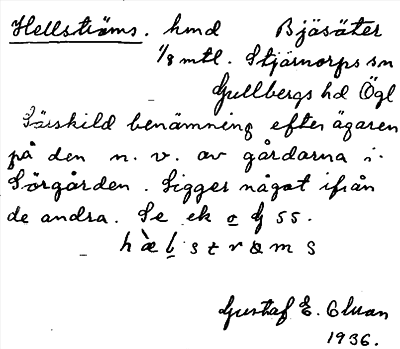 Hellströms. hmd Bjäsäter
1/8 mtl. Stjärnorps sn
Gullbergs hd Ögl
Särskild benämning efter ägaren
på den n. v. av gårdarna i
Sörgården. Ligger något ifrån
de andra. Se ek G 55.
Gustaf E. Olsson
1936.